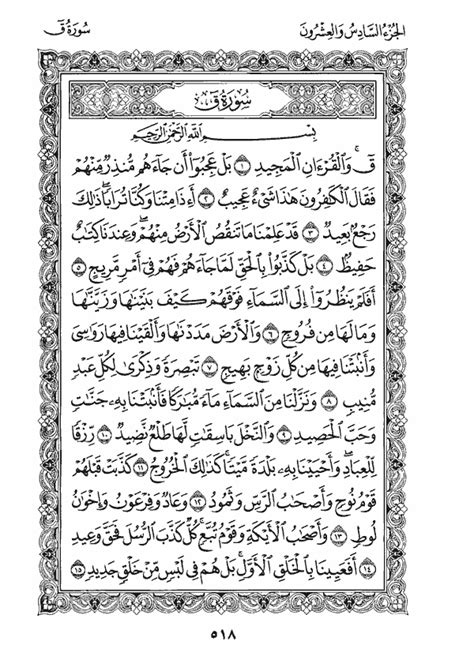 الجزء السادس والعشرون
سورة ق
سورة ق
بِسْمِ ٱللَّهِ ٱلرَّحْمَٰنِ ٱلرَّحِيمِ
قٓ ۚ وَٱلْقُرْءَانِ ٱلْمَجِيدِ ١ بَلْ عَجِبُوٓا۟ أَن جَآءَهُم مُّنذِرٌ مِّنْهُمْ
فَقَالَ ٱلْكَٰفِرُونَ هَٰذَا شَىْءٌ عَجِيبٌ ٢ أَءِذَا مِتْنَا وَكُنَّا تُرَابًا ۖ ذَٰلِكَ
رَجْعٌۢ بَعِيدٌ ٣ قَدْ عَلِمْنَا مَا تَنقُصُ ٱلْأَرْضُ مِنْهُمْ ۖ وَعِندَنَا كِتَٰبٌ
حَفِيظٌۢ ٤ بَلْ كَذَّبُوا۟ بِٱلْحَقِّ لَمَّا جَآءَهُمْ فَهُمْ فِىٓ أَمْرٍ مَّرِيجٍ ٥
أَفَلَمْ يَنظُرُوٓا۟ إِلَى ٱلسَّمَآءِ فَوْقَهُمْ كَيْفَ بَنَيْنَٰهَا وَزَيَّنَّٰهَا
وَمَا لَهَا مِن فُرُوجٍ ٦ وَٱلْأَرْضَ مَدَدْنَٰهَا وَأَلْقَيْنَا فِيهَا رَوَٰسِىَ
وَأَنۢبَتْنَا فِيهَا مِن كُلِّ زَوْجٍۭ بَهِيجٍ ٧ تَبْصِرَةً وَذِكْرَىٰ لِكُلِّ عَبْدٍ
مُّنِيبٍ ٨ وَنَزَّلْنَا مِنَ ٱلسَّمَآءِ مَآءً مُّبَٰرَكًا فَأَنۢبَتْنَا بِهِۦ جَنَّٰتٍ
وَحَبَّ ٱلْحَصِيدِ ٩ وَٱلنَّخْلَ بَاسِقَٰتٍ لَّهَا طَلْعٌ نَّضِيدٌ ١٠ رِّزْقًا
لِّلْعِبَادِ ۖ وَأَحْيَيْنَا بِهِۦ بَلْدَةً مَّيْتًا ۚ كَذَٰلِكَ ٱلْخُرُوجُ ١١ كَذَّبَتْ قَبْلَهُمْ
قَوْمُ نُوحٍ وَأَصْحَٰبُ ٱلرَّسِّ وَثَمُودُ ١٢ وَعَادٌ وَفِرْعَوْنُ وَإِخْوَٰنُ
لُوطٍ ١٣ وَأَصْحَٰبُ ٱلْأَيْكَةِ وَقَوْمُ تُبَّعٍ ۚ كُلٌّ كَذَّبَ ٱلرُّسُلَ فَحَقَّ وَعِيدِ
١٤ أَفَعَيِينَا بِٱلْخَلْقِ ٱلْأَوَّلِ ۚ بَلْ هُمْ فِى لَبْسٍ مِّنْ خَلْقٍ جَدِيدٍ ١٥
٥١٨